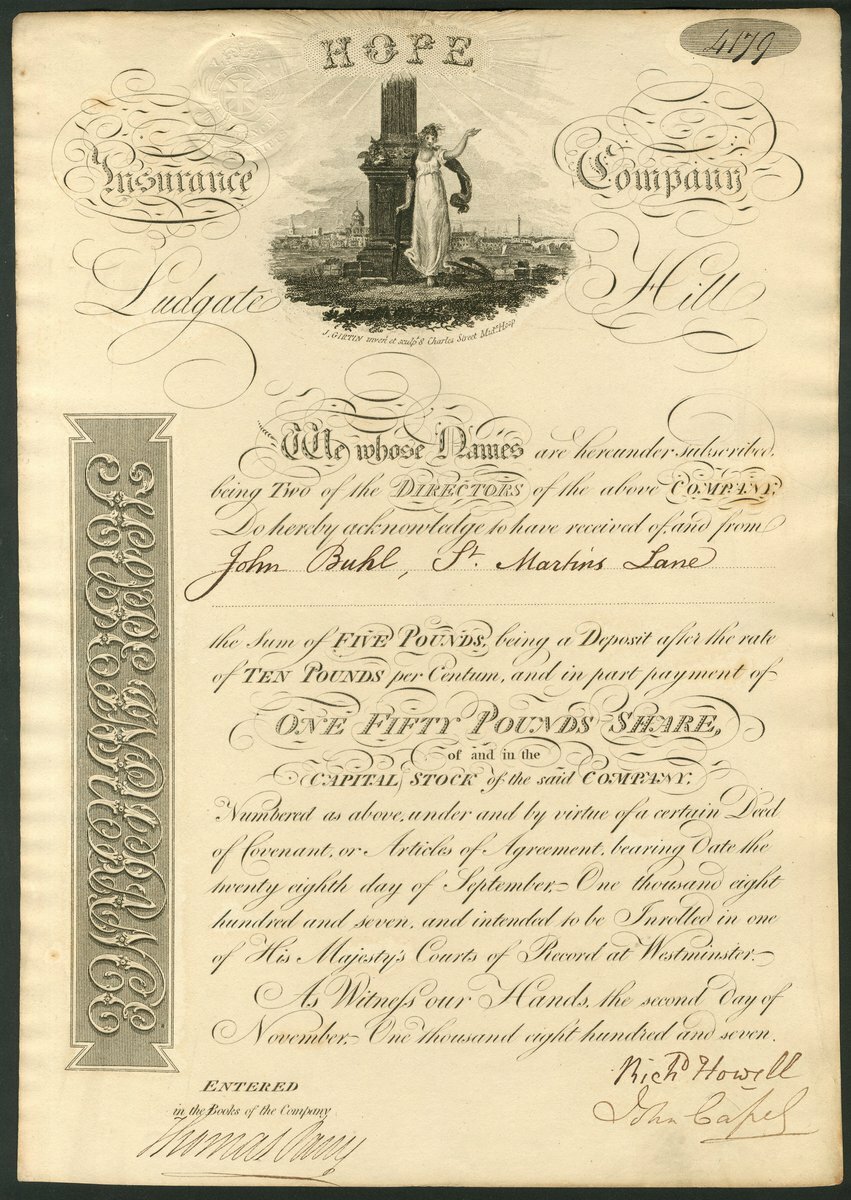 HOPE
4179
Insurance Company
Ludgate Hill
J. GIRTIN invent et sculpt 8 Charles Street Midx. Hosp
We whose Names are hereunder subscribed,
being Two of the DIRECTORS of the above COMPANY,
Do hereby acknowledge to have received of, and from
John Buhl, St. Martins Lane
the Sum of FIVE POUNDS, being a Deposit after the rate
of TEN POUNDS per Centum, and in part payment of
ONE FIFTY POUNDS SHARE,
of and in the
CAPITAL STOCK of the said COMPANY.
Numbered as above, under and by virtue of a certain Deed
of Covenant, or Articles of Agreement, bearing Date the
twenty eighth day of September, One thousand eight
hundred and seven, and intended to be Inrolled in one
of His Majesty's Courts of Record at Westminster.
As Witness our Hands, the second Day of
November, One thousand eight hundred and seven.
HOPE INSURANCE
Richd Howell
John Capel
ENTERED
in the Books of the Company
Thomas Parry